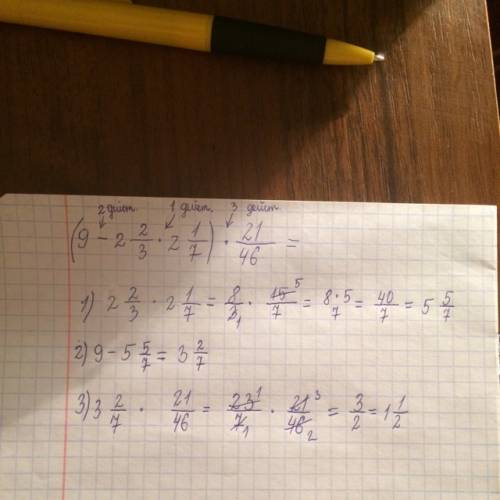 2 дейст. 1 дейст. 3 дейст.
(9 − 2 2/3 · 2 1/7) · 21/46 =
1) 2 2/3 · 2 1/7 = 8/3 1 · 15 5/7 = 8·5/7 = 40/7 = 5 5/7
2) 9 − 5 5/7 = 3 2/7
3) 3 2/7 · 21/46 = 23 1/7 1 · 21 3/46 2 = 3/2 = 1 1/2